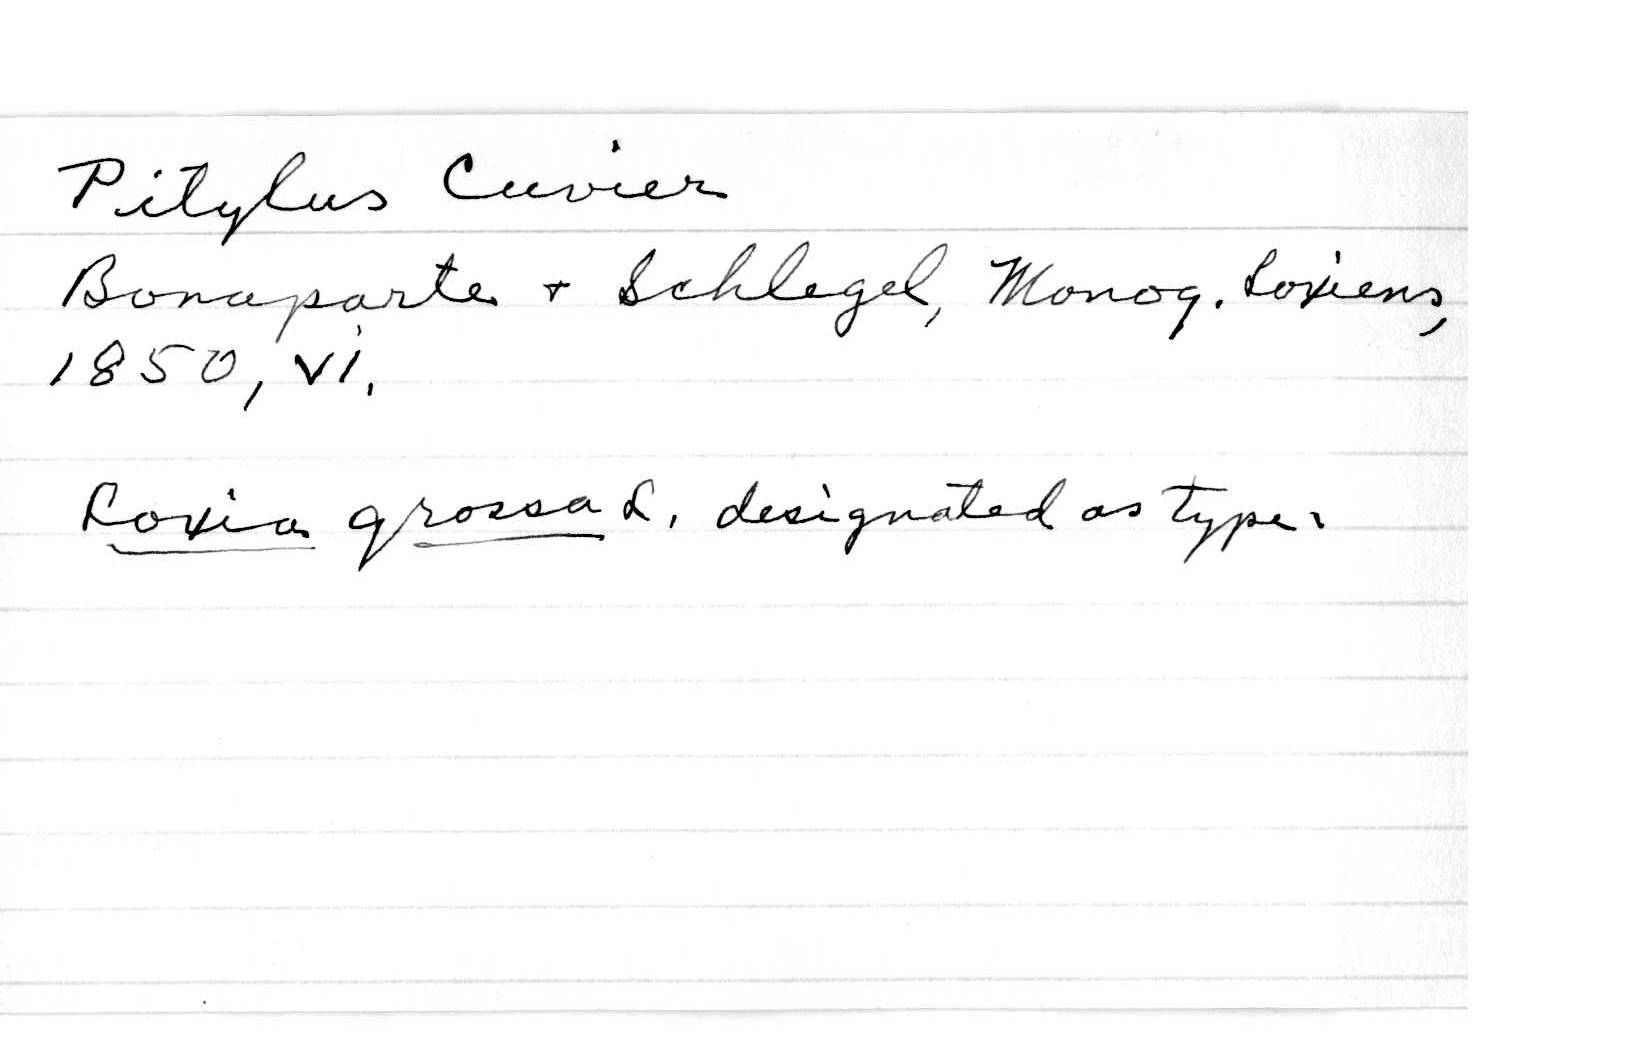 Pitylus Cuvier
Bonaparte + Schlegel, Monog. Loxiens,
1850, vi.
Loxia grossa L. designated as type.